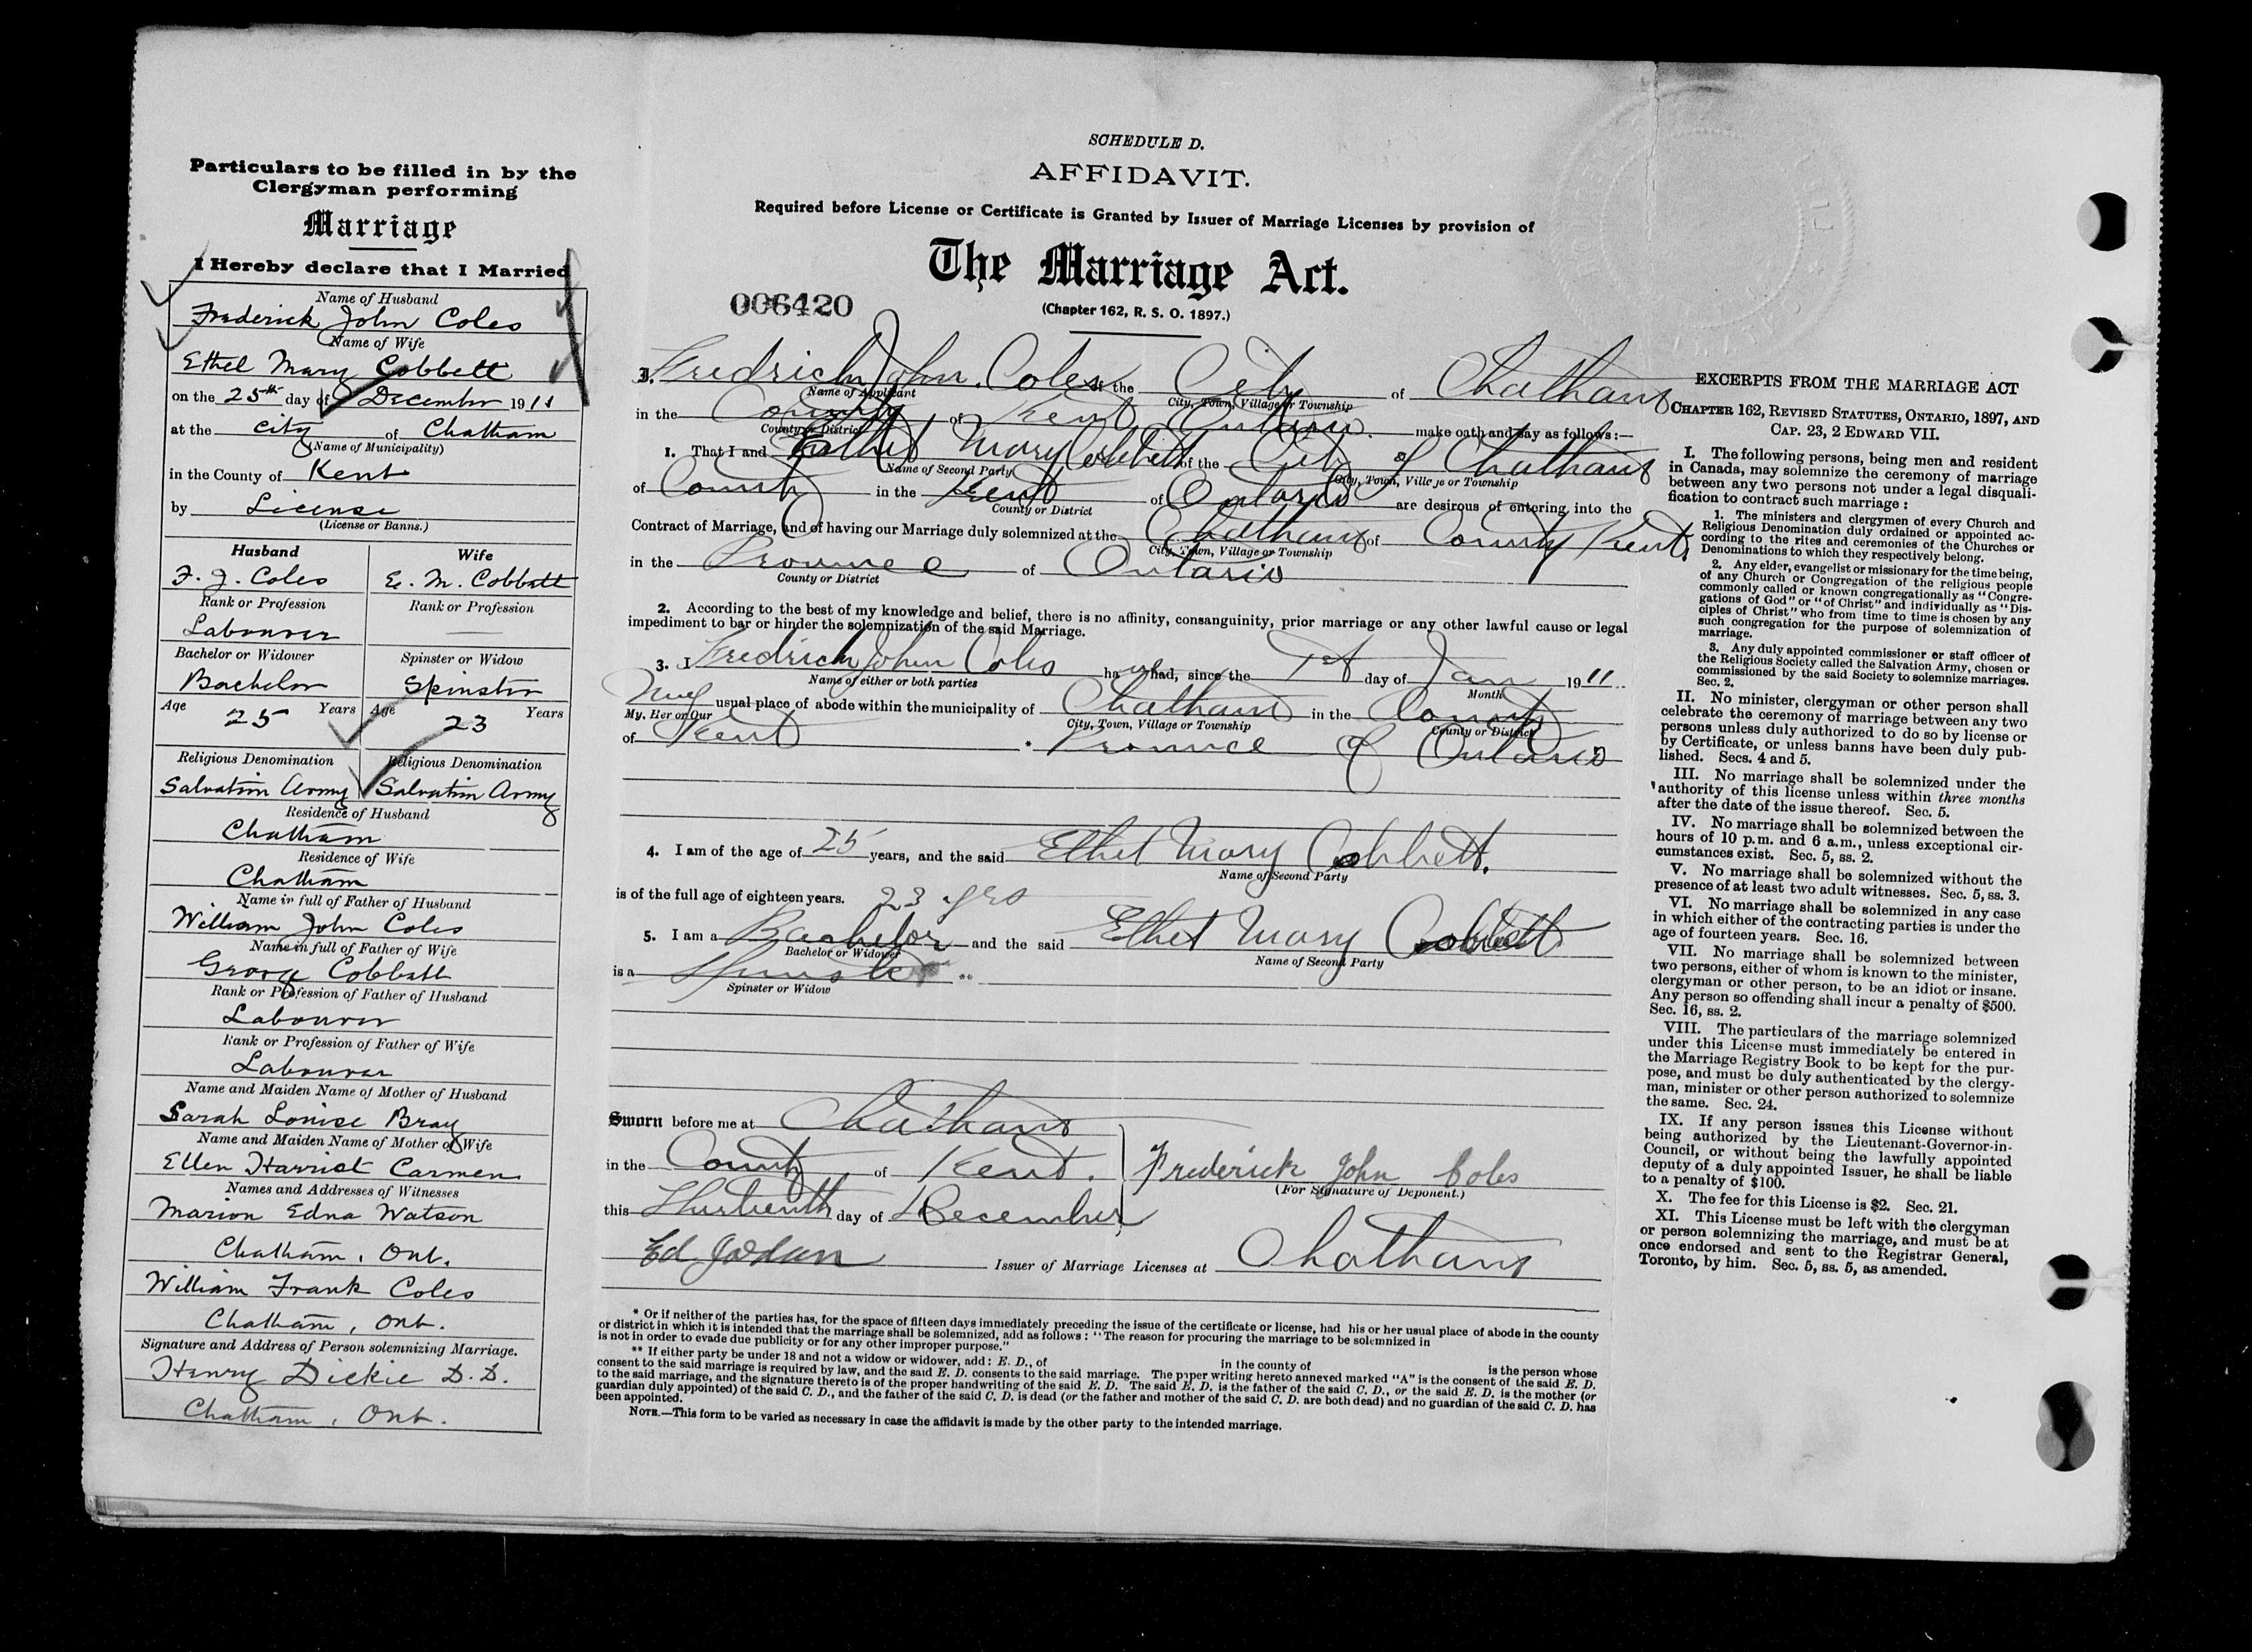 Particulars to be filled in by the
Clergyman performing
Marriage
I Hereby declare that I Married
Name of Husband
Frederick John Coles
Name of Wife
Ethel Mary Cobbett
on the 25th day of December 1911
at the city of Chatham
(Name of Municipality)
in the County of Kent
by License
(License or Banns.)
Husband Wife
F. J. Coles E. M. Cobbett
Rank or Profession Rank or Profession
Labourer
Bachelor or Widower Spinster or Widow
Bachelor Spinster
Age 25 Years Age 23 Years
Religious Denomination Religious Denomination
Salvation Army Salvation Army
Residence of Husband
Chatham
Residence of Wife
Chatham
Name in full of Father of Husband
William John Coles
Name in full of Father of Wife
George Cobbett
Rank or Profession of Father of Husband
Labourer
Rank or Profession of Father of Wife
Labourer
Name and Maiden Name of Mother of Husband
Sarah Louise Bray
Name and Maiden Name of Mother of Wife
Ellen Harriet Carmen
Names and Addresses of Witnesses
Marion Edna Watson
Chatham, Ont.
William Frank Coles
Chatham, Ont.
Signature and Address of Person solemnizing Marriage.
Henry Dickie D.D.
Chatham, Ont.
SCHEDULE D.
AFFIDAVIT.
Required before License or Certificate is Granted by Issuer of Marriage Licenses by provision of
The Marriage Act.
006420
(Chapter 162, R. S. O. 1897.)
I. Fredrich John Coles of the City of Chatham
Name of Applicant City, Town, Village or Township
in the County of Kent Ontario make oath and say as follows:—
County or District
1. That I and Ethel Mary Cobbett of the City of Chatham
Name of Second Party City, Town, Village or Township
of County in the Kent of Ontario are desirous of entering into the
County or District
Contract of Marriage, and of having our Marriage duly solemnized at the Chatham of County Kent,
City, Town, Village or Township
in the Province of Ontario
County or District
2. According to the best of my knowledge and belief, there is no affinity, consanguinity, prior marriage or any other lawful cause or legal
impediment to bar or hinder the solemnization of the said Marriage.
3. I Fredrich John Coles ha ve had, since the 1st day of Jan 1911
Name of either or both parties Month
My usual place of abode within the municipality of Chatham in the County
My, Her or Our City, Town, Village or Township County or District
of Kent . Province of Ontario
4. I am of the age of 25 years, and the said Ethel Mary Cobbett.
Name of Second Party
is of the full age of eighteen years. 23 yrs
5. I am a Bachelor and the said Ethel Mary Cobbett
Bachelor or Widower Name of Second Party
is a Spinster **
Spinster or Widow
Sworn before me at Chatham
in the County of Kent. Frederick John Coles
(For Signature of Deponent.)
this Thirteenth day of December
Ed Jordan Issuer of Marriage Licenses at Chatham
* Or if neither of the parties has, for the space of fifteen days immediately preceding the issue of the certificate or license, had his or her usual place of abode in the county
or district in which it is intended that the marriage shall be solemnized, add as follows: "The reason for procuring the marriage to be solemnized in
is not in order to evade due publicity or for any other improper purpose."
** If either party be under 18 and not a widow or widower, add: E. D., of in the county of is the person whose
consent to the said marriage is required by law, and the said E. D. consents to the said marriage. The paper writing hereto annexed marked "A" is the consent of the said E. D.
to the said marriage, and the signature thereto is of the proper handwriting of the said E. D. The said E. D. is the father of the said C. D., or the said E. D. is the mother (or
guardian duly appointed) of the said C. D., and the father of the said C. D. is dead (or the father and mother of the said C. D. are both dead) and no guardian of the said C. D. has
been appointed.
NOTE.—This form to be varied as necessary in case the affidavit is made by the other party to the intended marriage.
EXCERPTS FROM THE MARRIAGE ACT
CHAPTER 162, REVISED STATUTES, ONTARIO, 1897, AND
CAP. 23, 2 EDWARD VII.
I. The following persons, being men and resident
in Canada, may solemnize the ceremony of marriage
between any two persons not under a legal disquali-
fication to contract such marriage:
1. The ministers and clergymen of every Church and
Religious Denomination duly ordained or appointed ac-
cording to the rites and ceremonies of the Churches or
Denominations to which they respectively belong.
2. Any elder, evangelist or missionary for the time being,
of any Church or Congregation of the religious people
commonly called or known congregationally as "Congre-
gations of God" or "of Christ" and individually as "Dis-
ciples of Christ" who from time to time is chosen by any
such congregation for the purpose of solemnization of
marriage.
3. Any duly appointed commissioner or staff officer of
the Religious Society called the Salvation Army, chosen or
commissioned by the said Society to solemnize marriages.
Sec. 2.
II. No minister, clergyman or other person shall
celebrate the ceremony of marriage between any two
persons unless duly authorized to do so by license or
by Certificate, or unless banns have been duly pub-
lished. Secs. 4 and 5.
III. No marriage shall be solemnized under the
authority of this license unless within three months
after the date of the issue thereof. Sec. 5.
IV. No marriage shall be solemnized between the
hours of 10 p.m. and 6 a.m., unless exceptional cir-
cumstances exist. Sec. 5, ss. 2.
V. No marriage shall be solemnized without the
presence of at least two adult witnesses. Sec. 5, ss. 3.
VI. No marriage shall be solemnized in any case
in which either of the contracting parties is under the
age of fourteen years. Sec. 16.
VII. No marriage shall be solemnized between
two persons, either of whom is known to the minister,
clergyman or other person, to be an idiot or insane.
Any person so offending shall incur a penalty of $500.
Sec. 16, ss. 2.
VIII. The particulars of the marriage solemnized
under this License must immediately be entered in
the Marriage Registry Book to be kept for the pur-
pose, and must be duly authenticated by the clergy-
man, minister or other person authorized to solemnize
the same. Sec. 24.
IX. If any person issues this License without
being authorized by the Lieutenant-Governor-in-
Council, or without being the lawfully appointed
deputy of a duly appointed Issuer, he shall be liable
to a penalty of $100.
X. The fee for this License is $2. Sec. 21.
XI. This License must be left with the clergyman
or person solemnizing the marriage, and must be at
once endorsed and sent to the Registrar General,
Toronto, by him. Sec. 5, ss. 5, as amended.